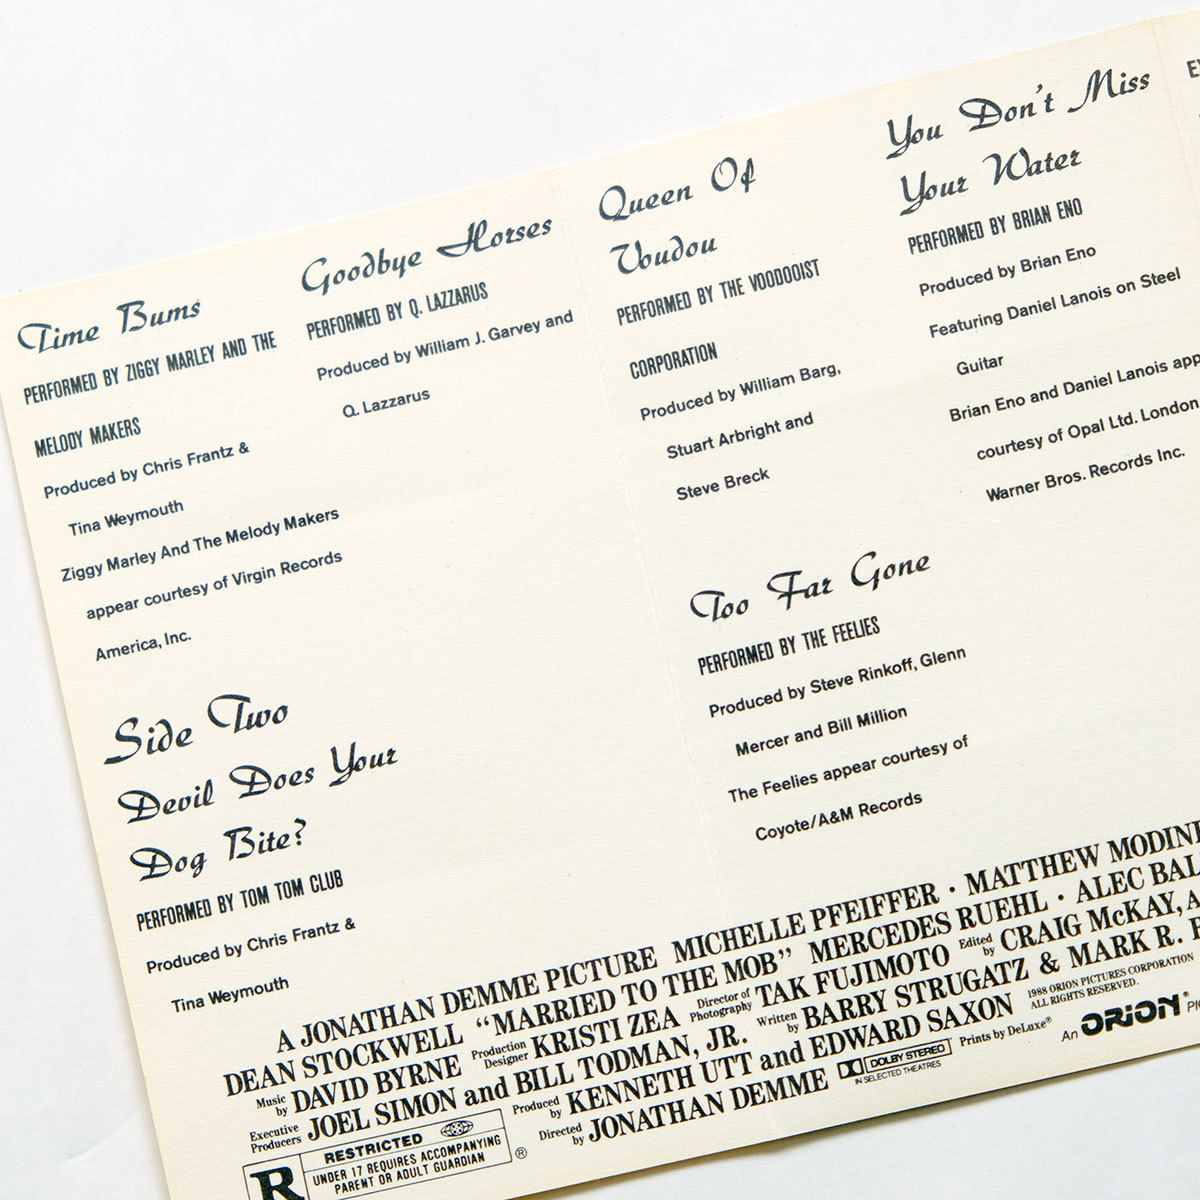 Time Bums
PERFORMED BY ZIGGY MARLEY AND THE
MELODY MAKERS
Produced by Chris Frantz &
Tina Weymouth
Ziggy Marley And The Melody Makers
appear courtesy of Virgin Records
America, Inc.
Side Two
Devil Does Your
Dog Bite?
PERFORMED BY TOM TOM CLUB
Produced by Chris Frantz &
Tina Weymouth
Goodbye Horses
PERFORMED BY Q. LAZZARUS
Produced by William J. Garvey and
Q. Lazzarus
Queen Of
Voudou
PERFORMED BY THE VOODOOIST
CORPORATION
Produced by William Barg,
Stuart Arbright and
Steve Breck
Too Far Gone
PERFORMED BY THE FEELIES
Produced by Steve Rinkoff, Glenn
Mercer and Bill Million
The Feelies appear courtesy of
Coyote/A&M Records
You Don't Miss
Your Water
PERFORMED BY BRIAN ENO
Produced by Brian Eno
Featuring Daniel Lanois on Steel
Guitar
Brian Eno and Daniel Lanois app
courtesy of Opal Ltd. London
Warner Bros. Records Inc.
A JONATHAN DEMME PICTURE MICHELLE PFEIFFER · MATTHEW MODINE
DEAN STOCKWELL "MARRIED TO THE MOB" MERCEDES RUEHL · ALEC BAL
Music by DAVID BYRNE Production Designer KRISTI ZEA Director of Photography TAK FUJIMOTO Edited by CRAIG McKAY, A
Executive Producers JOEL SIMON and BILL TODMAN, JR. Written by BARRY STRUGATZ & MARK R.
Produced by KENNETH UTT and EDWARD SAXON 1988 ORION PICTURES CORPORATION
ALL RIGHTS RESERVED.
Directed by JONATHAN DEMME DOLBY STEREO Prints by DeLuxe® An ORION® PI
IN SELECTED THEATRES
R RESTRICTED
UNDER 17 REQUIRES ACCOMPANYING
PARENT OR ADULT GUARDIAN ®